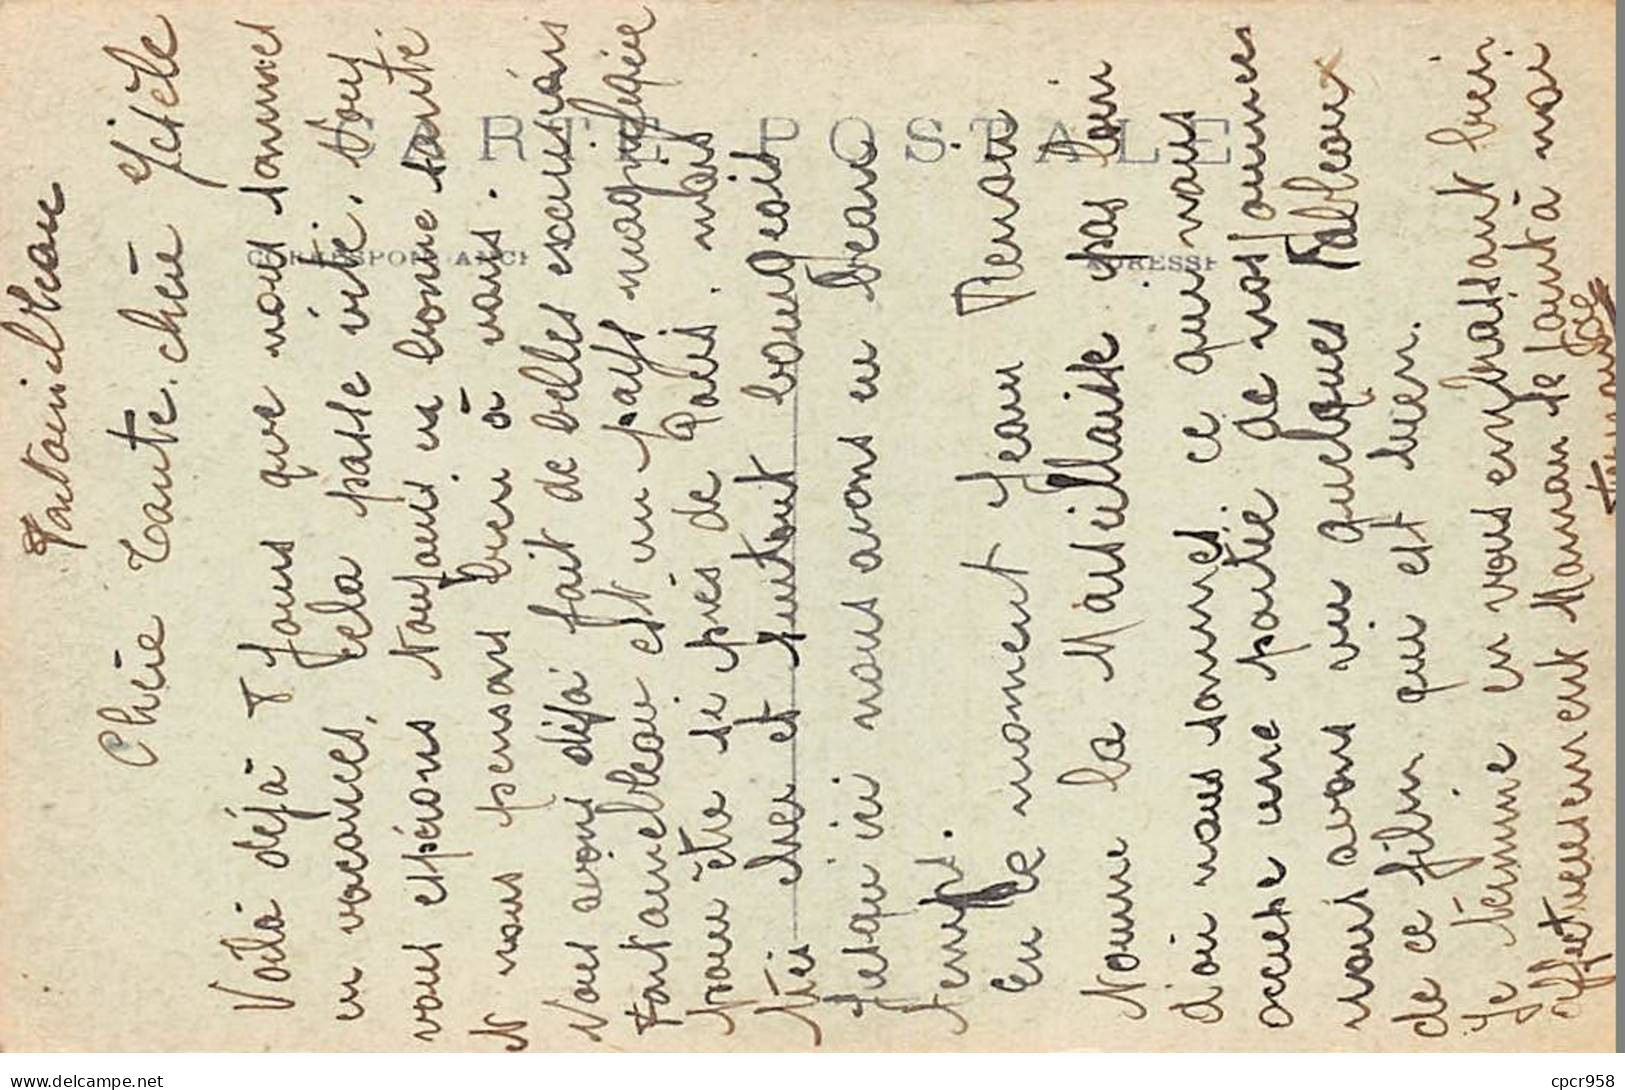 Fontainebleau
Chère Tante, chère Gisèle
Voilà déjà 8 jours que nous sommes
en vacances, cela passe vite. Vous
nous espérons toujours en bonne santé
Nous pensons bien à vous.
Nous avons déjà fait de belles excursions
Fontainebleau est un pays magnifique
pour être si près de Paris. mais
très cher et surtout bourgeois
Jusqu'ici nous avons eu beau
temps.
En ce moment Jean Renoir
tourne la Marseillaise pas loin
d'où nous sommes, ce qui nous
occupe une partie de nos journées
nous avons vu quelques Tableaux
de ce film qui est bien.
Je termine en vous embrassant bien
affectueusement Maman se joint à moi
Fernande
CARTE POSTALE
CORRESPONDANCE
ADRESSE
cpcr958
delcampe.net